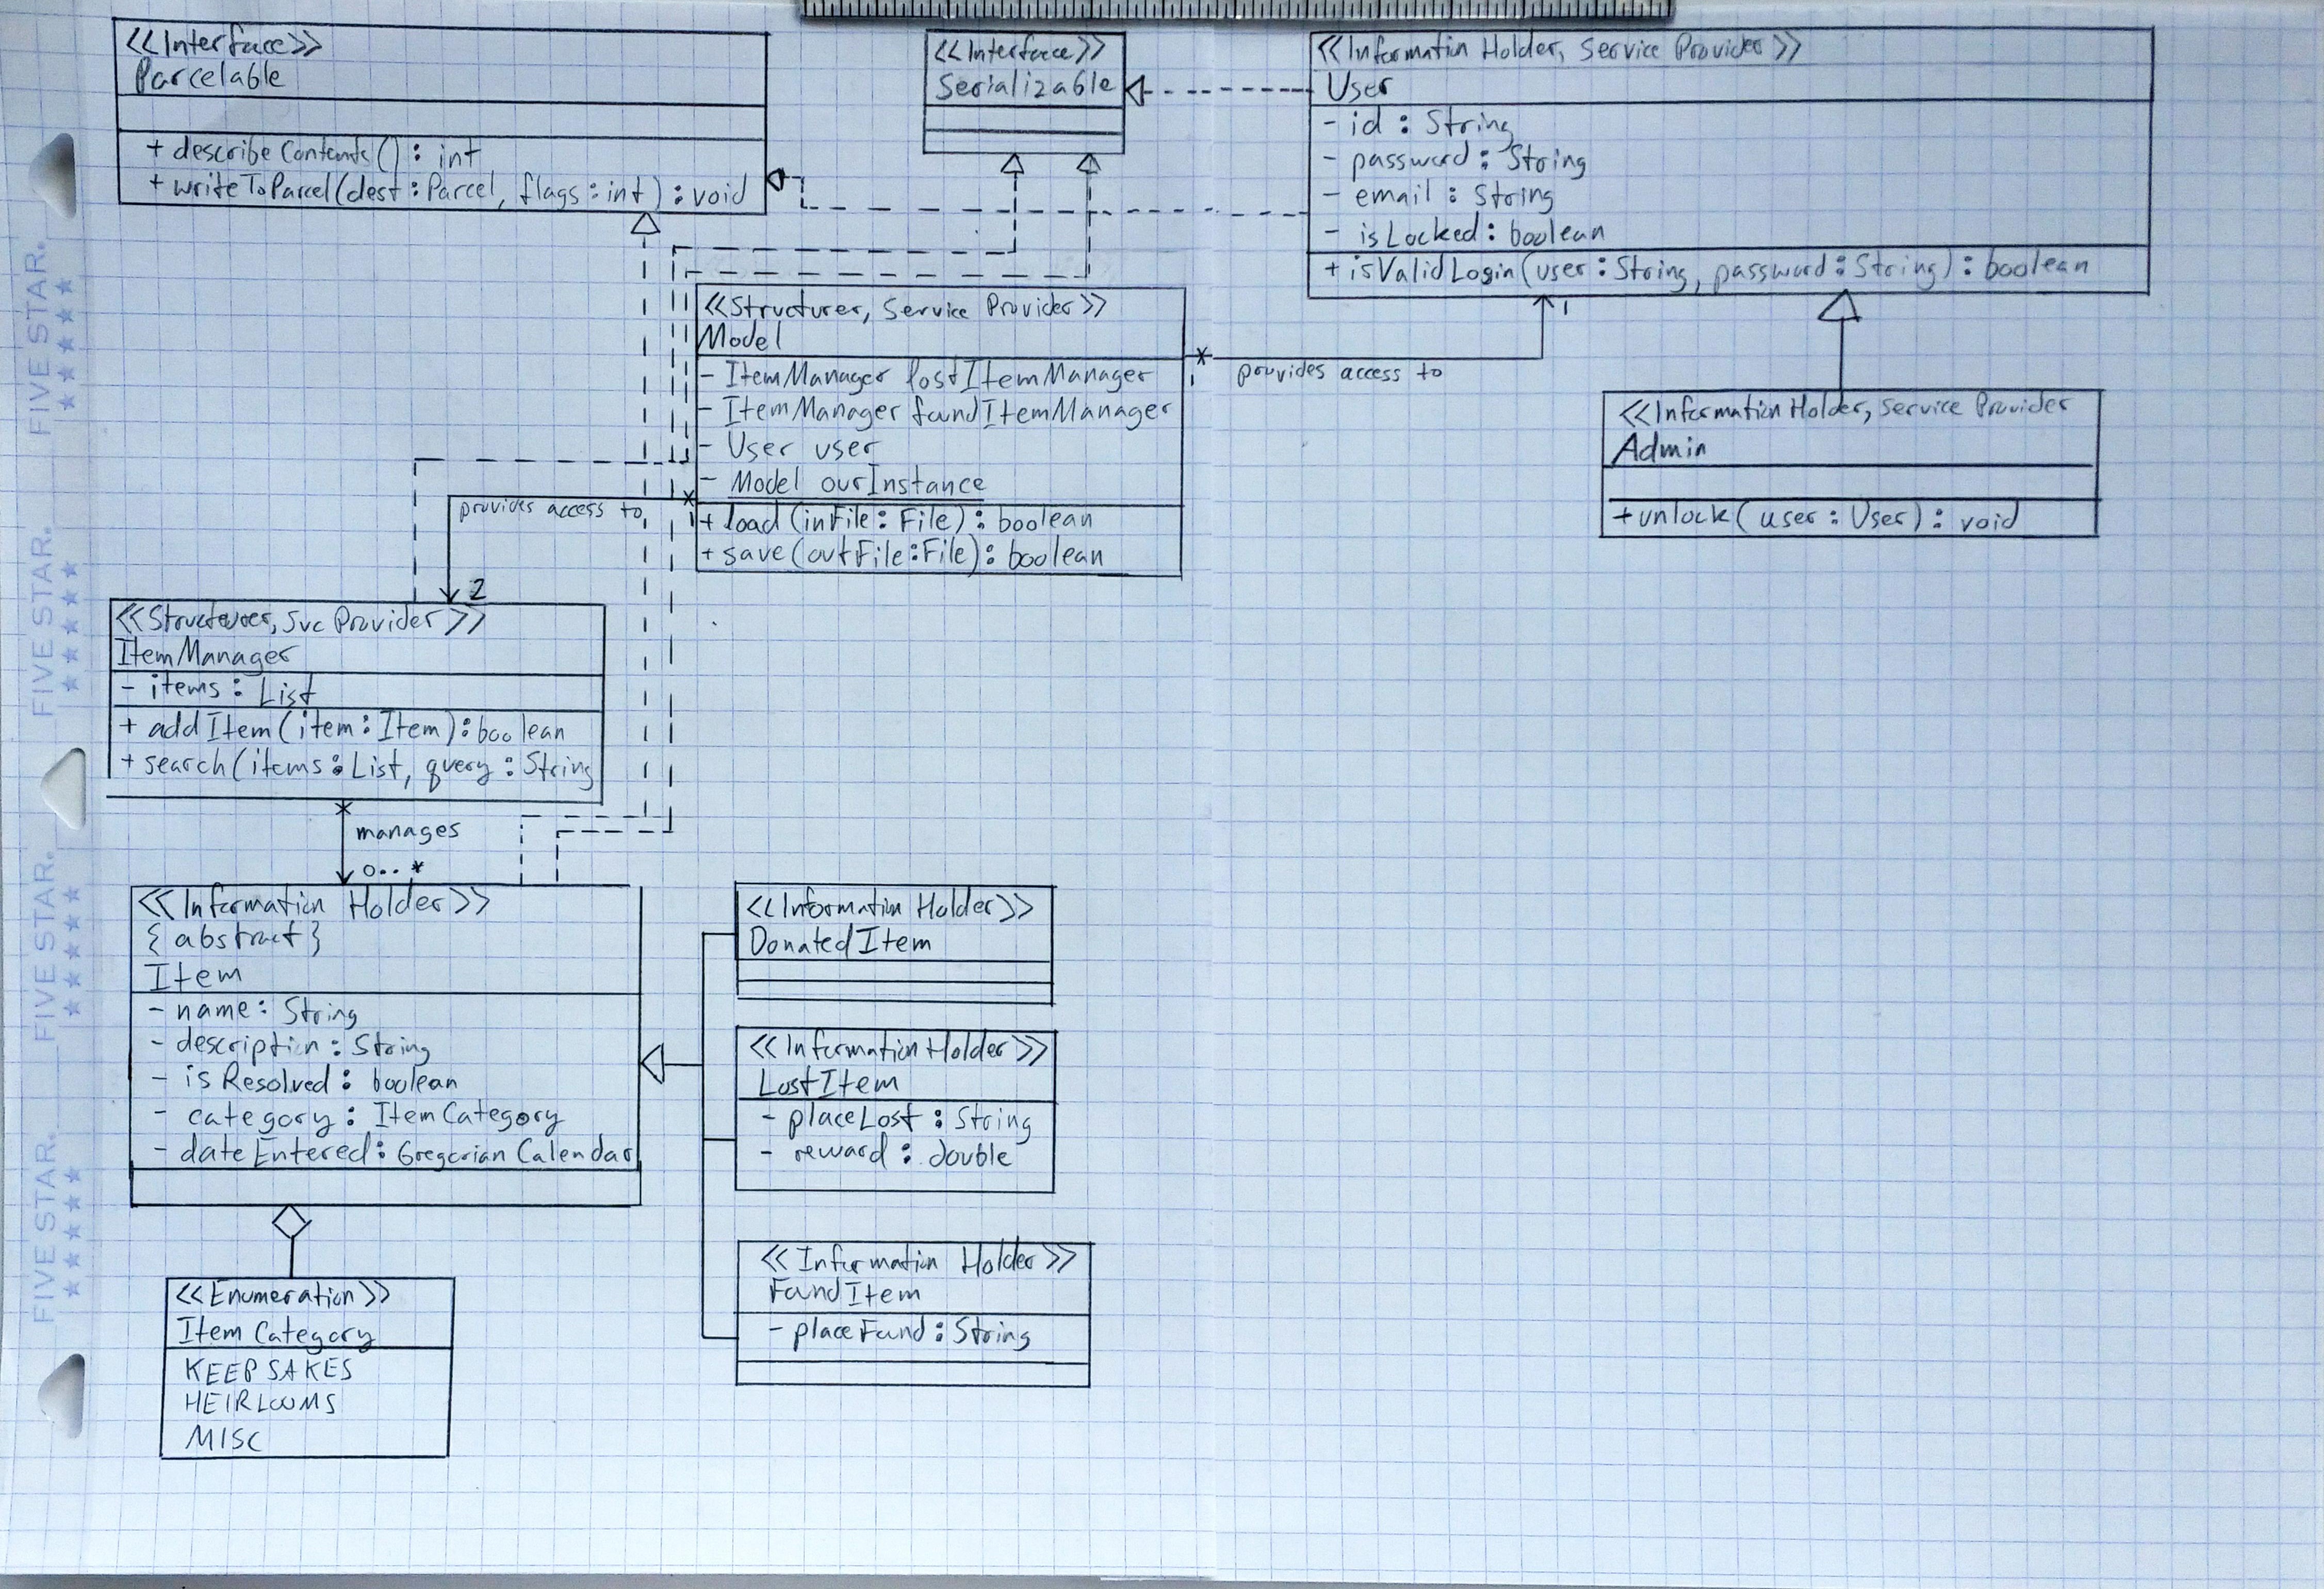 <<Interface>>
Parcelable
+ describeContents() : int
+ writeToParcel(dest : Parcel, flags : int) : void
<<Interface>>
Serializable
<<Information Holder, Service Provider>>
User
- id : String
- password : String
- email : String
- isLocked : boolean
+ isValidLogin(user : String, password : String) : boolean
1
<<Structurer, Service Provider>>
Model
- ItemManager lostItemManager
- ItemManager foundItemManager
- User user
- Model ourInstance
+ load(inFile : File) : boolean
+ save(outFile : File) : boolean
*
provides access to
<<Information Holder, Service Provider
Admin
+ unlock(user : User) : void
*
provides access to
2
<<Structurer, Svc Provider>>
ItemManager
- items : List
+ addItem(item : Item) : boolean
+ search(items : List, query : String
*
manages
0..*
<<Information Holder>>
{abstract}
Item
- name : String
- description : String
- isResolved : boolean
- category : ItemCategory
- dateEntered : GregorianCalendar
<<Information Holder>>
DonatedItem
<<Information Holder>>
LostItem
- placeLost : String
- reward : double
<<Information Holder>>
FoundItem
- placeFound : String
<<Enumeration>>
ItemCategory
KEEPSAKES
HEIRLOOMS
MISC
FIVE STAR.
FIVE STAR.
FIVE STAR.
FIVE STAR.